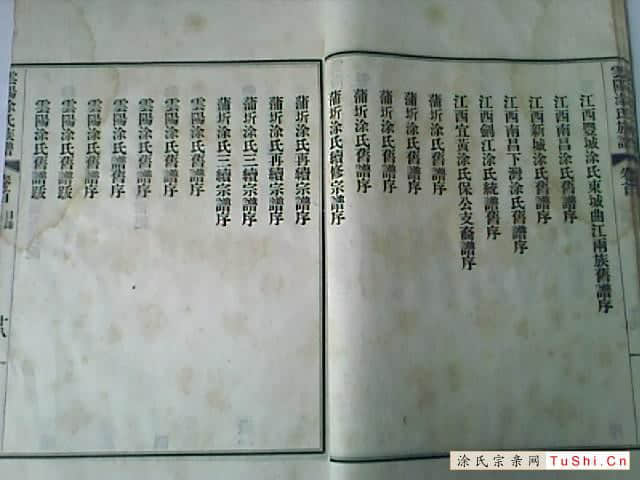 雲陽涂氏族譜 卷首
江西豐城涂氏東城曲江兩族舊譜序
江西南昌涂氏舊譜序
江西新城涂氏舊譜序
江西南昌下灣涂氏舊譜序
江西劍江涂氏統譜舊序
江西宜黃涂氏保公支裔譜序
蒲圻涂氏舊譜序
蒲圻涂氏舊譜序
蒲圻涂氏舊譜序
蒲圻涂氏舊譜序
蒲圻涂氏續修宗譜序
蒲圻涂氏再續宗譜序
蒲圻涂氏再續宗譜序
蒲圻涂氏三續宗譜序
蒲圻涂氏三續宗譜序
雲陽涂氏舊譜序
雲陽涂氏舊譜序
雲陽涂氏舊譜序
雲陽涂氏舊譜跋
雲陽涂氏舊譜跋
雲陽涂氏舊譜跋
雲陽涂氏舊譜跋
雲陽涂氏族譜 卷首 目錄
涂氏宗亲网 TuShi.Cn